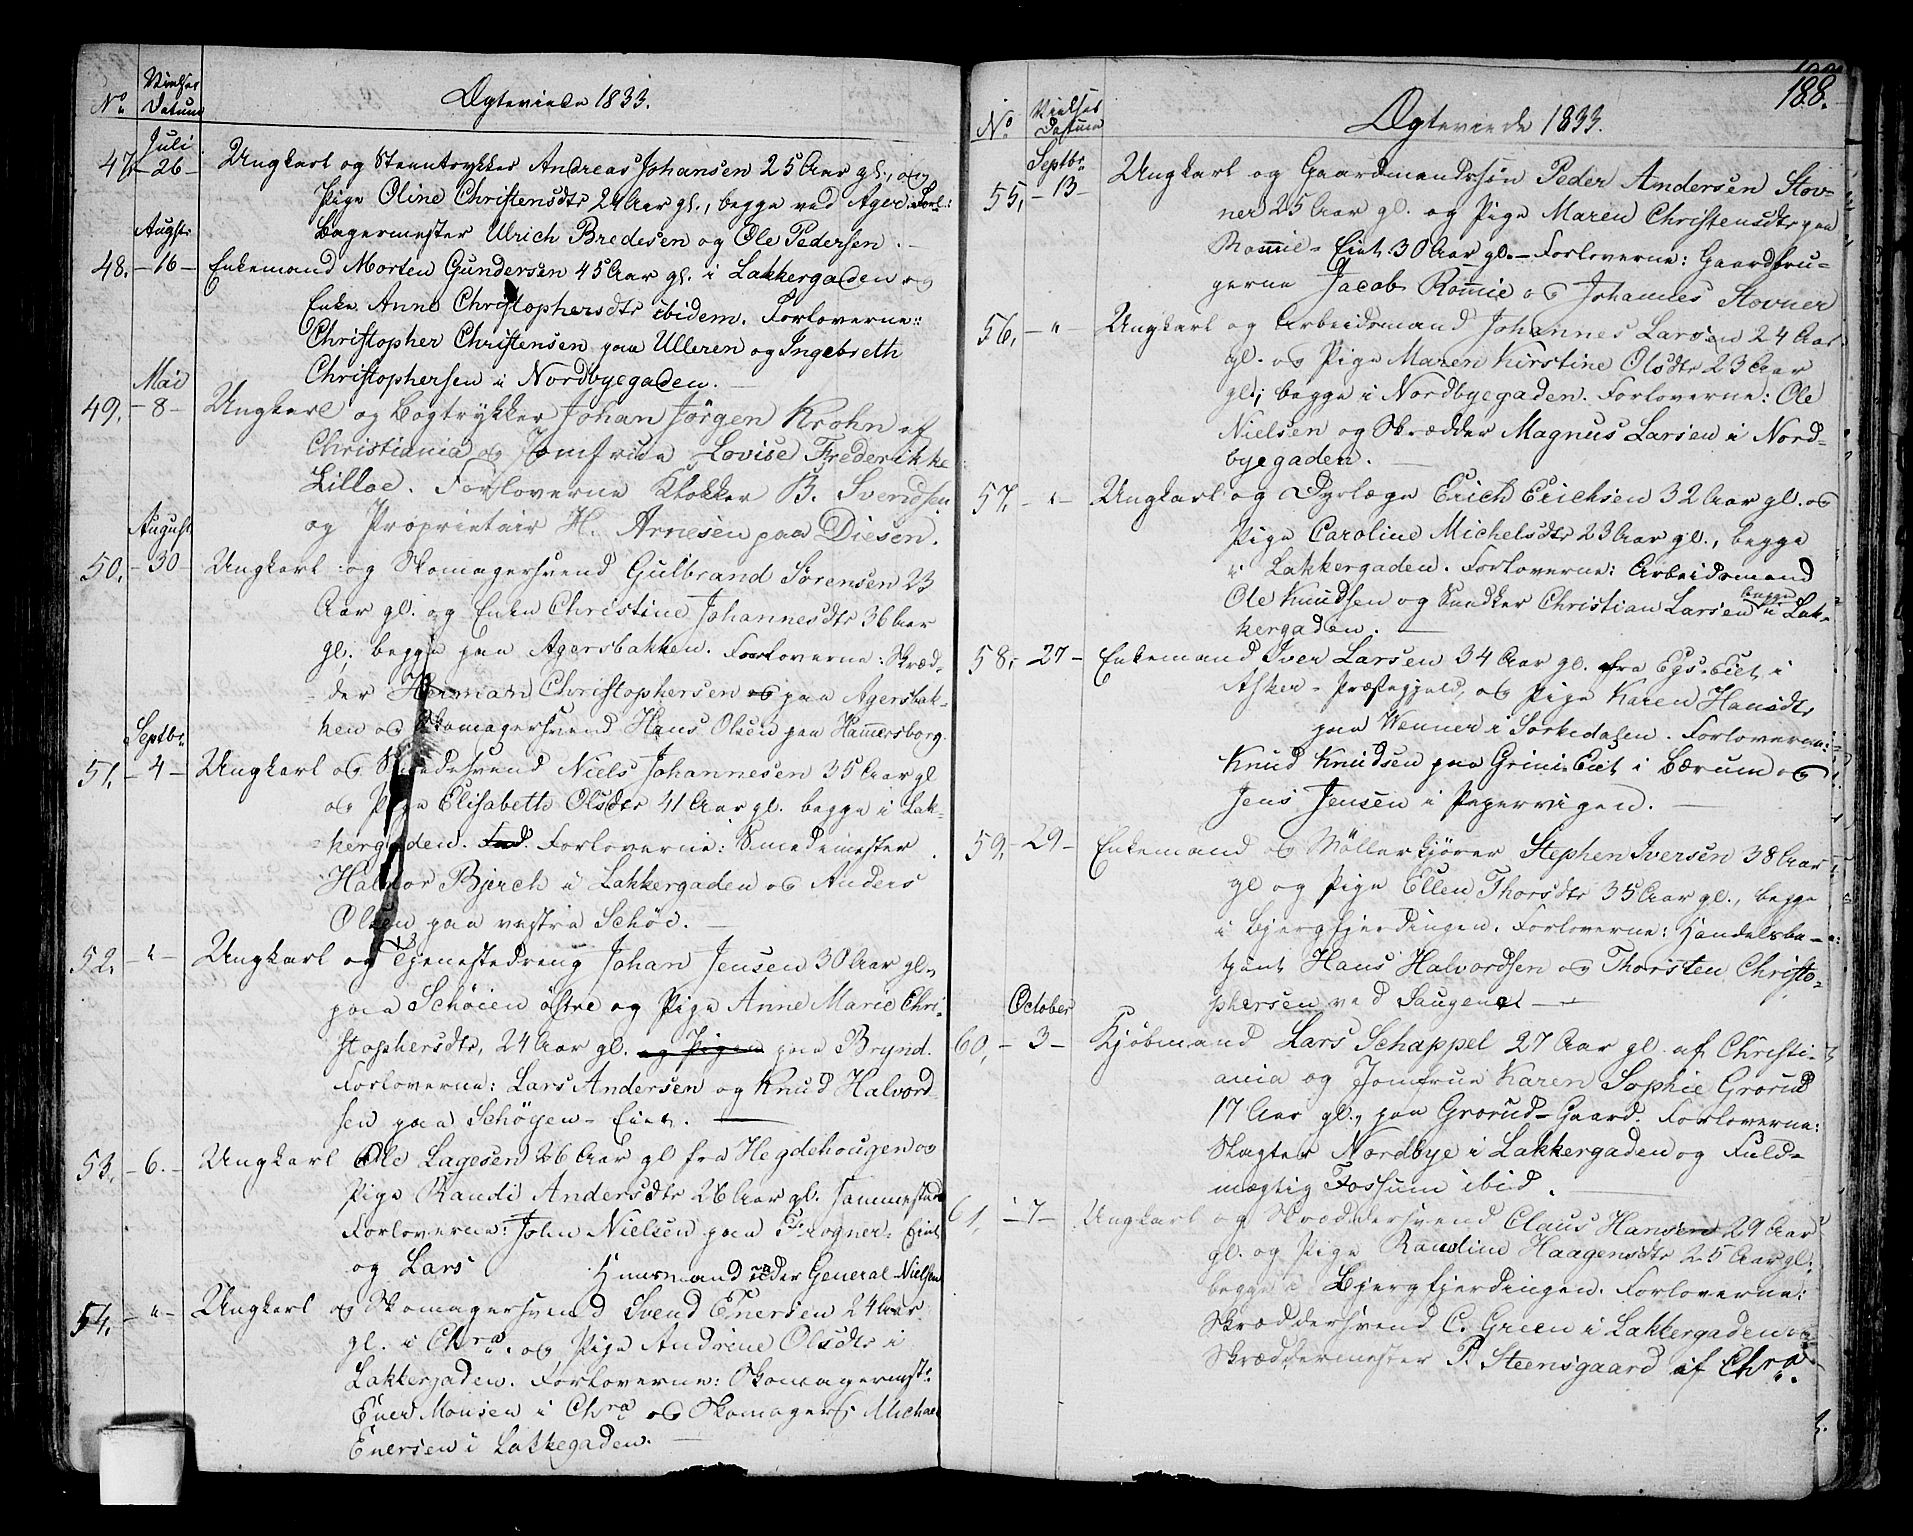 No Vielses Datum Ægteviede 1833.
Juli
47. -26- Ungkarl og Steentrykker Andreas Johansen 25 Aar gl., og
Pige Oline Christensdtr 24 Aar gl., begge ved Ager. Forl:
Bagermester Ulrich Bredesen og Ole Pedersen.
Augst.
48. -16- Enkemand Morten Gundersen 45 Aar gl. i Lakkergaden og
Enke Anne Christophersdtr ibidem. Forloverne:
Christopher Christensen paa Ulleren og Ingebreth
Christophersen i Nordbyegaden.
Mai
49. -8- Ungkarl og Bogtrykker Johan Jörgen Krohn af
Christiania og Jomfrue Lovise Frederikke
Lilloe. Forloverne Klokker B. Svendsen
og Proprietair H. Arnesen paa Diesen.
August
50. -30- Ungkarl og Skomagersvend Gulbrand Sörensen 23
Aar gl. og Enke Christine Johannesdtr 36 Aar
gl; begge paa Agersbakken. Forloverne: Skræd-
der Herman Christophersen og paa Agersbak-
ken og Skomagersvend Hans Olsen paa Hammersborg.
Septbr.
51. -4- Ungkarl og Smedesvend Niels Johannesen 35 Aar gl
og Pige Elisabeth Olsdtr 41 Aar gl. begge i Lak-
kergaden. Forloverne: Smedemester
Halvor Bjerch i Lakkergaden og Anders
Olsen paa vestre Schöe.
52. -"- Ungkarl og Tjenestedreng Johan Jensen 30 Aar gl.
paa Schöien östre og Pige Anne Marie Chri-
stophersdtr, 24 Aar gl. og Pigen paa Brynd.
Forloverne: Lars Andersen og Knud Halvord-
sen paa Schöyen-Eiet.
53. -6.- Ungkarl Ole Lagesen 26 Aar gl fra Hegdehougen og
Pige Randi Andersdtr 26 Aar gl. sammesteds
Forloverne: John Nielsen paa Frogner-Eiet
og Lars Huusmand under General Nielsen
54. -"- Ungkarl og Skomagersvend Svend Enersen 24 Aar
gl. i Chra. og Pige Andrine Olsdtr i
Lakkergaden. Forloverne: Skomagermstr.
Ener Monsen i Chra og Skomagers. Michael
Enersen i Lakkegaden.
188.
No Vielses Datum Ægteviede 1833.
Septbr.
55. -13- Ungkarl og Gaardmandssön Peder Andersen Stov-
ner 25 Aar gl. og Pige Maren Christensdtr paa
Rommie-Eiet 30 Aar gl.- Forloverne: Gaardbru-
gerne Jacob Rommie og Johannes Stovner
56. " Ungkarl og Arbeidsmand Johannes Larsen 24 Aar
gl. og Pige Maren Kirstine Olsdtr 23 Aar
gl; begge i Nordbyegaden. Forloverne: Ole
Nielsen og Skrædder Magnus Larsen i Nord-
byegaden.
57. -"- Ungkarl og Dyrlæge Erich Erichsen 32 Aar gl. og
Pige Caroline Michelsdtr 23 Aar gl., begge
i Lakkergaden. Forloverne: Arbeidsmand
Ole Knudsen og Snedker Christian Larsen begge i Lak-
kergaden.
58. -27- Enkemand Iver Larsen 34 Aar gl. fra Egs-Eiet i
Asker-Præstegjeld, og Pige Karen Hansdtr
paa Wenner i Sörkedalen. Forloverne:
Knud Knudsen paa Grini-Eiet i Bærum og
Jens Jensen i Pipervigen.
59. -29- Enkemand og Möllerkjörer Stephen Iversen 38 Aar
gl og Pige Ellen Thorsdtr 35 Aar gl., begge
i Bjergfjerdingen. Forloverne: Handelsbe-
tjent Hans Halvordsen og Thorsten Christo-
phersen ved Saugene
October
60. -3- Kjöbmand Lars Schappel 27 Aar gl. af Christi-
ania og Jomfrue Karen Sophie Grorud
17 Aar gl., paa Grorud-Gaard. Forloverne:
Slagter Nordbye i Lakkergaden og Fuld-
mægtig Fossum ibid.
61. -7- Ungkarl og Skræddersvend Claus Hansen 29 Aar
gl. og Pige Randine Haagensdtr 25 Aar gl.
begge i Bjergfjerdingen. Forloverne:
Skræddersvend C. Green i Lakkergaden og
Skræddermester P. Steensgaard af Chra.